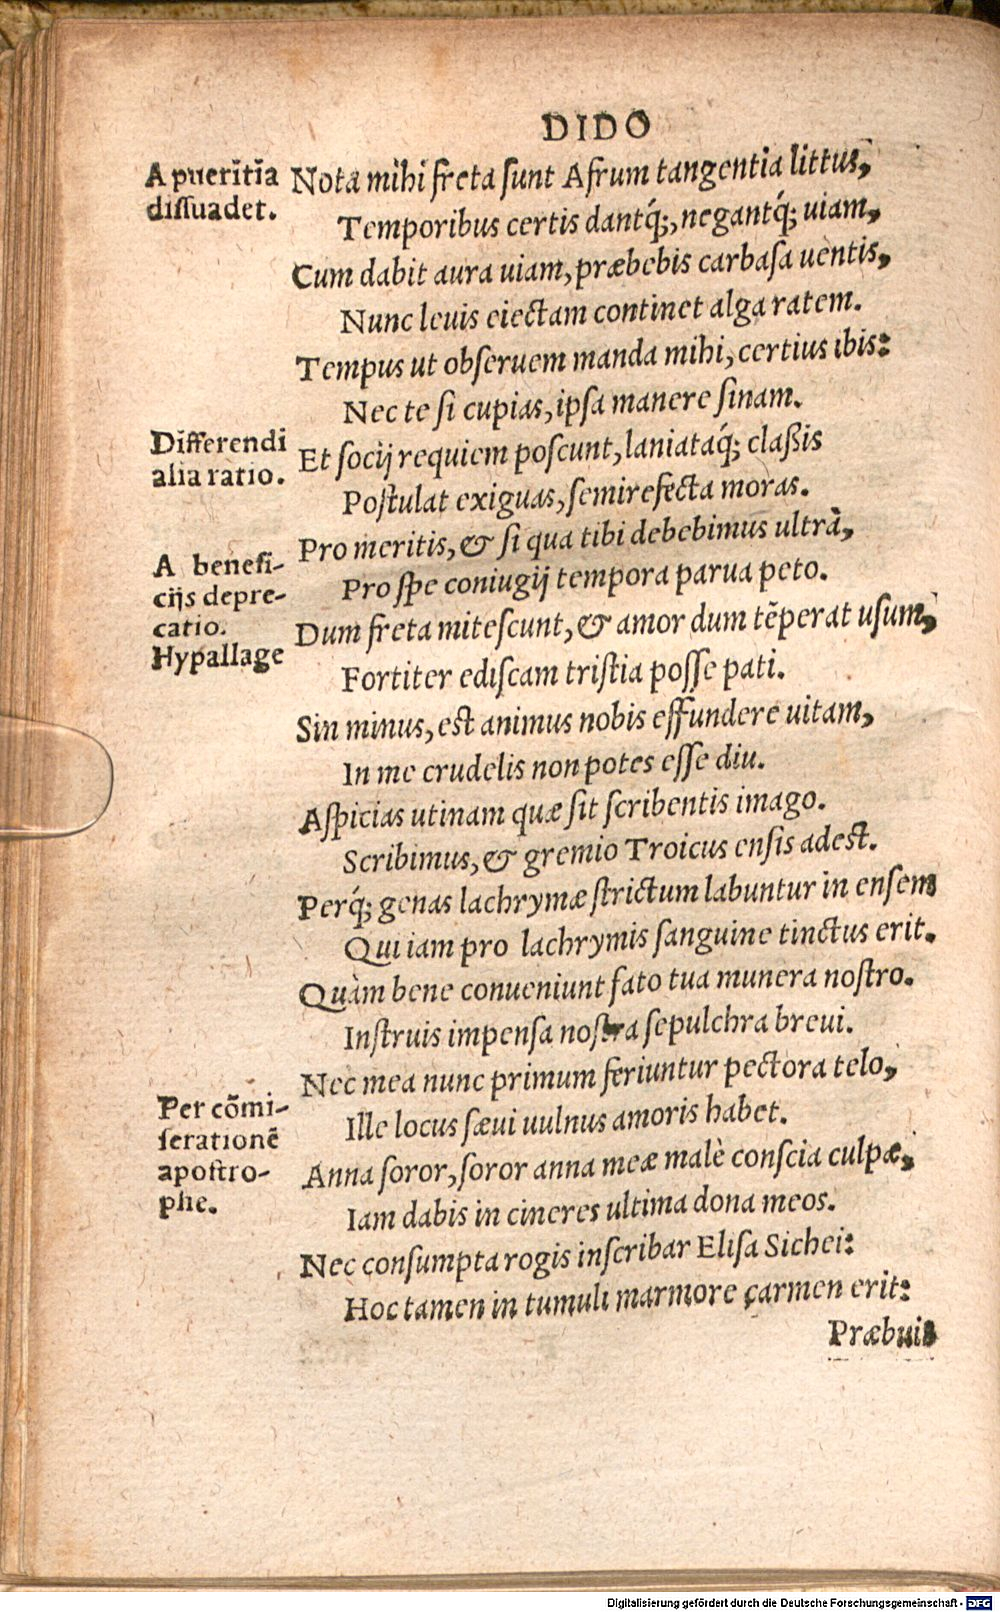 DIDO
A pueritia
dissuadet.
Nota mihi freta sunt Afrum tangentia littus,
Temporibus certis dantq́;, negantq́; uiam,
Cum dabit aura uiam, præbebis carbasa uentis,
Nunc leuis eiectam continet alga ratem.
Tempus ut obseruem manda mihi, certius ibis:
Nec te si cupias, ipsa manere sinam.
Differendi
alia ratio.
Et socij requiem poscunt, laniataq́; claßis
Postulat exiguas, semirefecta moras.
A benefi-
cijs depre-
catio.
Hypallage
Pro meritis, & si qua tibi debebimus ultrà,
Pro spe coniugij tempora parua peto.
Dum freta mitescunt, & amor dum tẽperat usum,
Fortiter ediscam tristia posse pati.
Sin minus, est animus nobis effundere uitam,
In me crudelis non potes esse diu.
Aspicias utinam quæ sit scribentis imago.
Scribimus, & gremio Troicus ensis adest.
Perq́; genas lachrymæ strictum labuntur in ensem
Qui iam pro lachrymis sanguine tinctus erit.
Quàm bene conueniunt fato tua munera nostro.
Instruis impensa nostra sepulchra breui.
Nec mea nunc primum feriuntur pectora telo,
Ille locus sæui uulnus amoris habet.
Per cõmi-
serationẽ
apostro-
phe.
Anna soror, soror anna meæ malè conscia culpæ,
Iam dabis in cineres ultima dona meos.
Nec consumpta rogis inscribar Elisa Sichei:
Hoc tamen in tumuli marmore carmen erit:
Præbuit
Digitalisierung gefördert durch die Deutsche Forschungsgemeinschaft - DFG